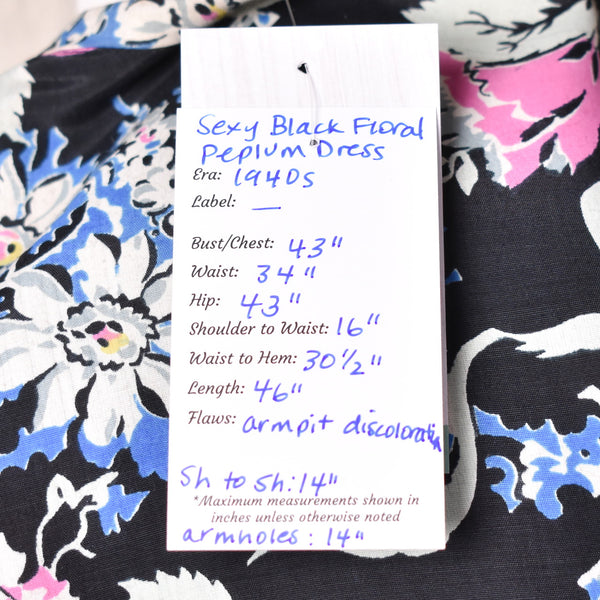 Sexy Black Floral
Peplum Dress
Era: 1940s
Label: —
Bust/Chest: 43"
Waist: 34"
Hip: 43"
Shoulder to Waist: 16"
Waist to Hem: 30 1/2"
Length: 46"
Flaws: armpit discoloration
Sh to Sh: 14"
*Maximum measurements shown in
inches unless otherwise noted
armholes: 14"